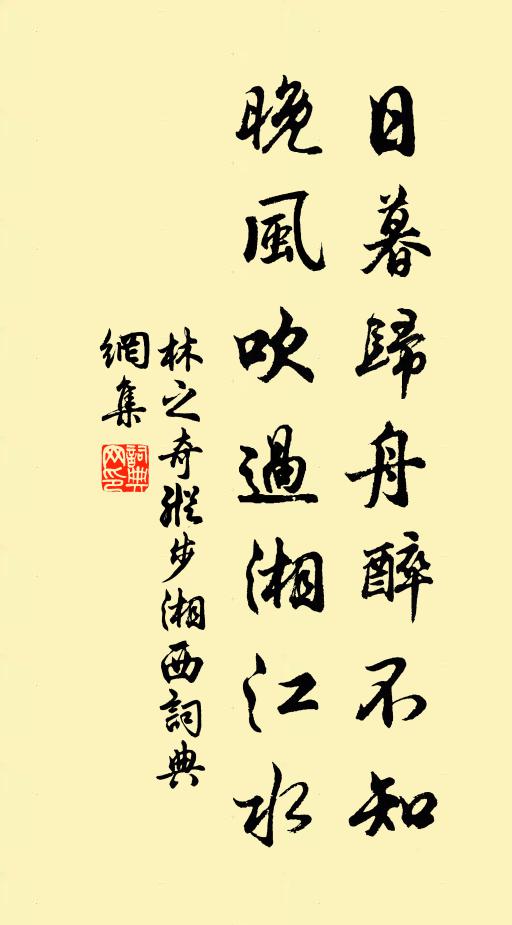 日暮歸舟醉不知
晚風吹過湘江水
林之奇縱步湘西詞典
網集
詞典
网印